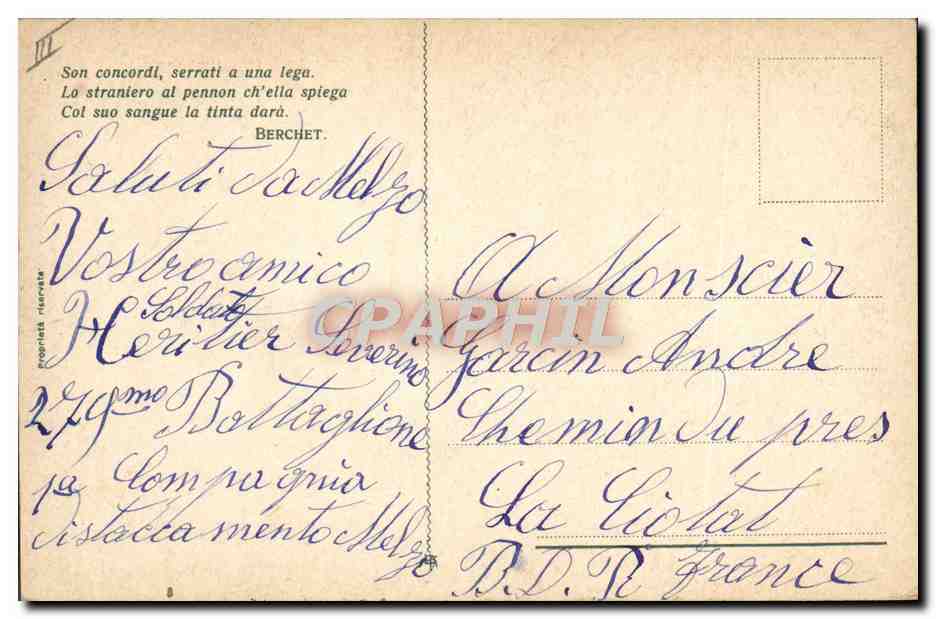 III
Son concordi, serrati a una lega.
Lo straniero al pennon ch'ella spiega
Col suo sangue la tinta darà.
BERCHET.
Saluti da Melzo
Vostro amico
Soldato
Heritier Severino
279mo Battaglione
1a Compagnia
distaccamento Melzo
proprietà riservata
CPAPHIL
A Monscier
Garcin Andre
Chemin du pres
La Ciotat
B.D.R France